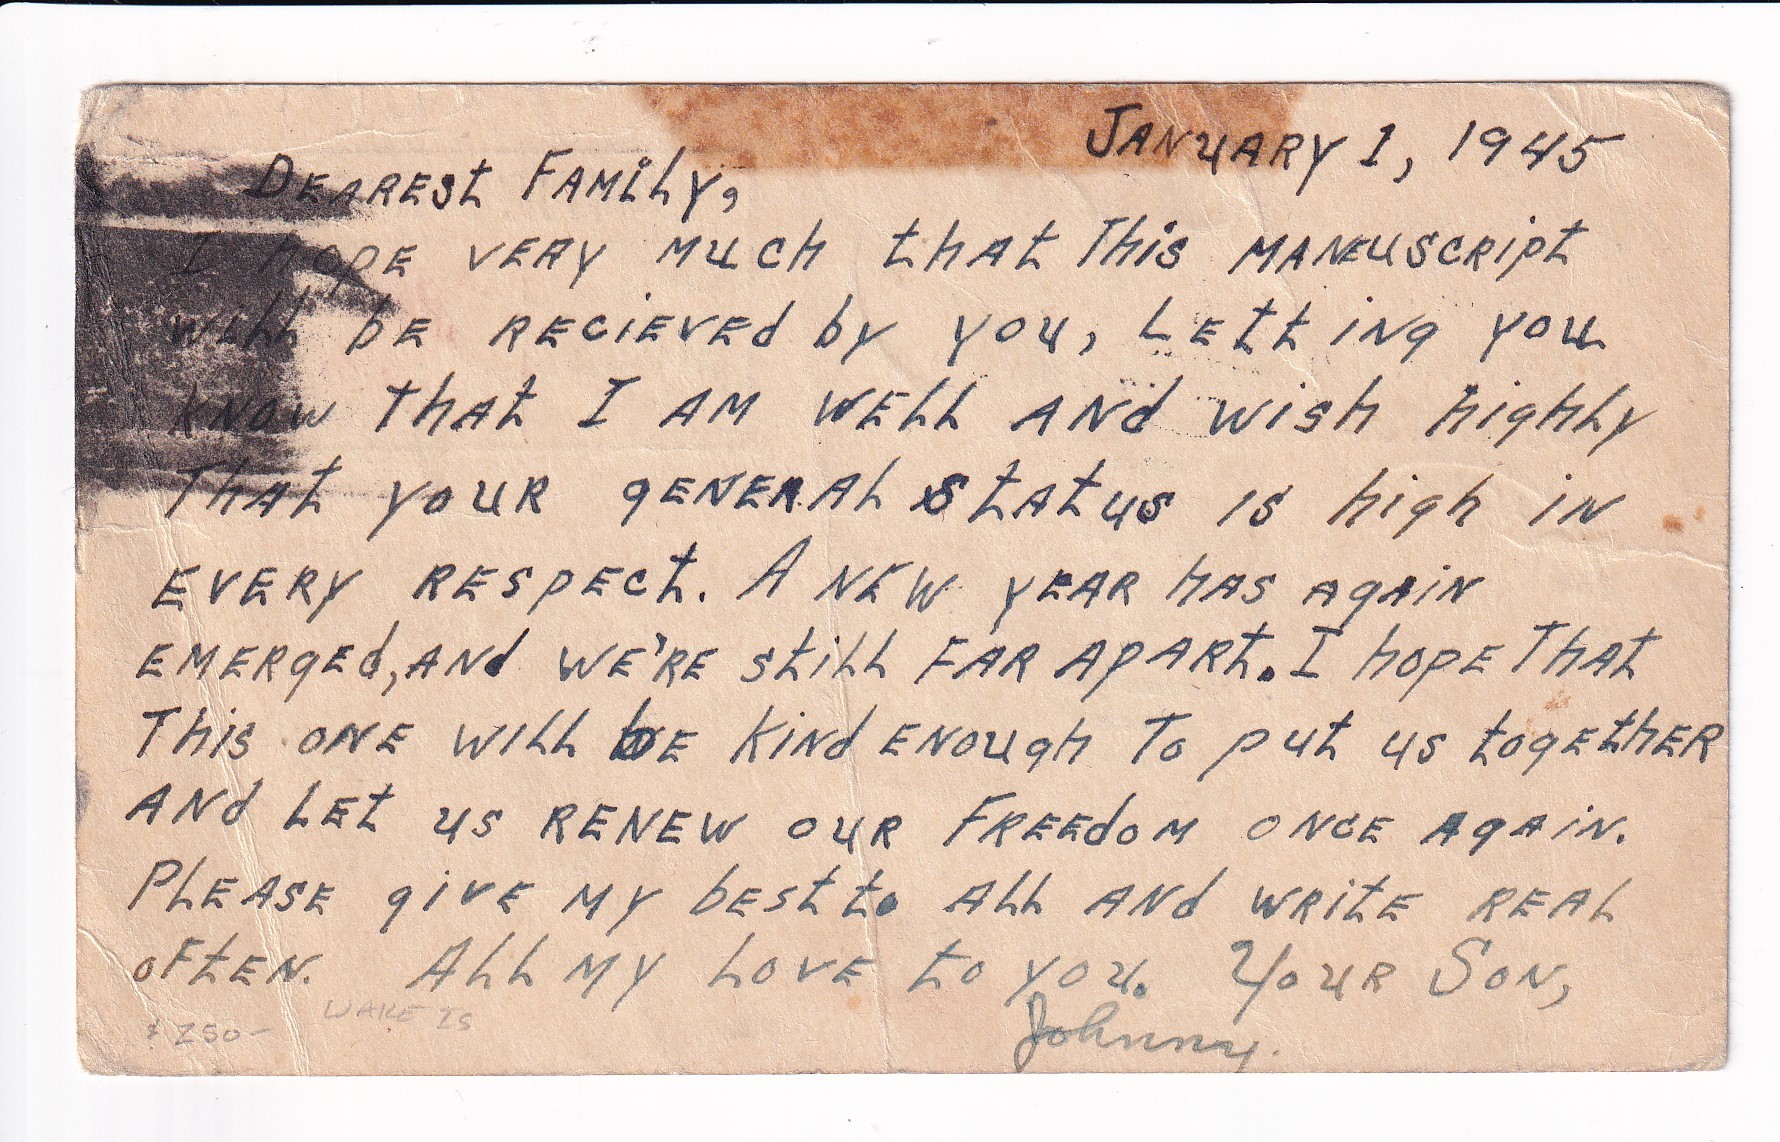 January 1, 1945
Dearest Family,
I hope very much that this maneuscript
will be recieved by you, letting you
know that I am well and wish highly
that your general status is high in
every respect. A new year has again
emerged, and we're still far apart. I hope that
this one will be kind enough to put us together
and let us renew our freedom once again.
Please give my best to all and write real
often. All my love to you. Your Son,
Johnny.
WAKE IS
$250-